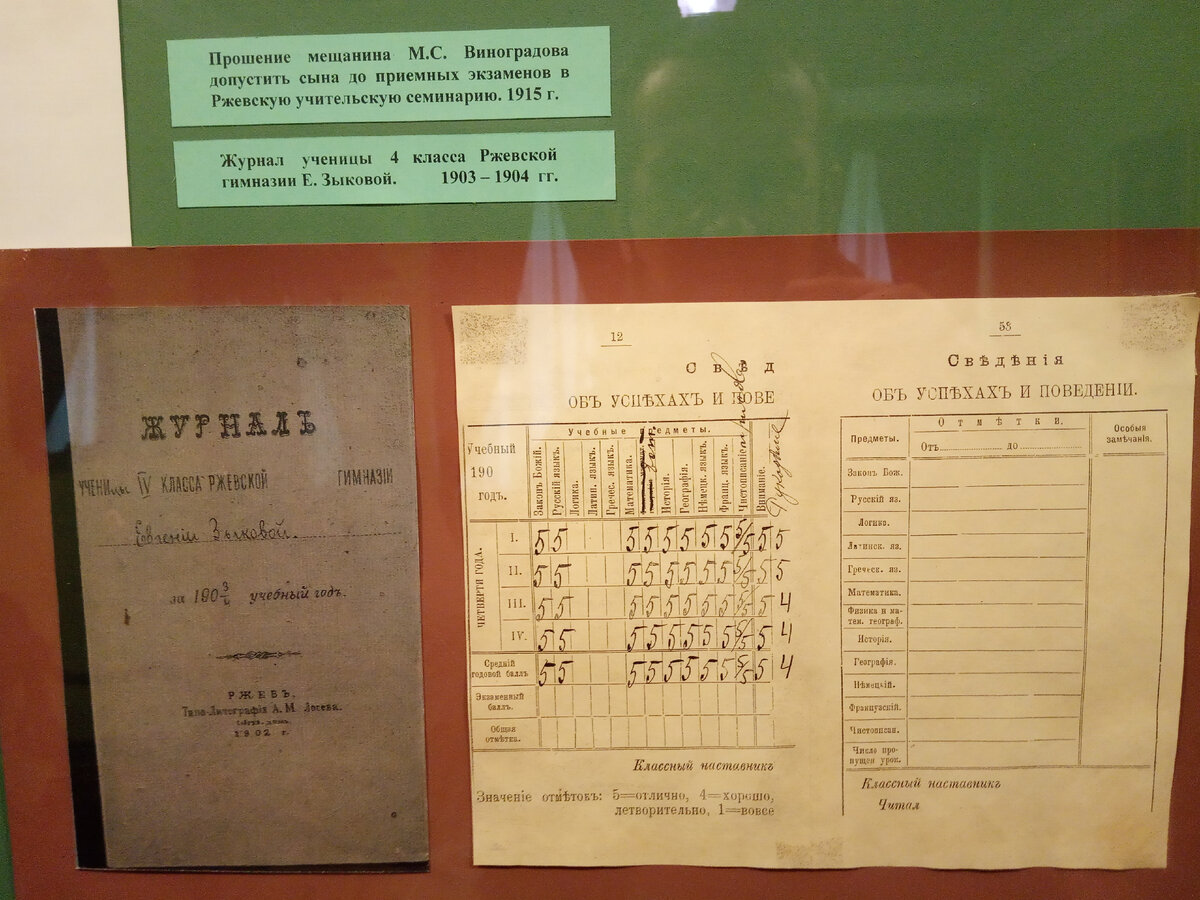 Прошение мещанина М.С. Виноградова
допустить сына до приемных экзаменов в
Ржевскую учительскую семинарию. 1915 г.
Журнал ученицы 4 класса Ржевской
гимназии Е. Зыковой. 1903 – 1904 гг.
ЖУРНАЛЪ
УЧЕНИцы IV КЛАССА РЖЕВСКОЙ ГИМНАЗІИ
Евгеніи Зыковой.
за 190 3/4 учебный годъ.
РЖЕВЪ.
Типо-Литографія А. М. Лосева.
1902 г.
12
СВѢД
ОБЪ УСПѢХАХЪ И ПОВЕ
Учебный
190
годъ.
Учебные предметы.
Законъ Божій.
Русскій языкъ.
Логика.
Латин. языкъ.
Гречес. языкъ.
Математика.
Исторія.
Географія.
Нѣмецк. языкъ.
Франц. языкъ.
Чистописаніе
Вниманіе.
Рукодѣліе
ЧЕТВЕРТИ ГОДА.
I. 5 5 5 5 5 5 5 5 5/5 5 5
II. 5 5 5 5 5 5 5 5 5/5 5 5
III. 5 5 5 5 5 5 5 5 5/5 5 4
IV. 5 5 5 5 5 5 5 5 5/5 5 4
Средній
годовой баллъ 5 5 5 5 5 5 5 5 5/5 5 4
Экзаменный
баллъ.
Общая
отмѣтка.
Классный наставникъ
Значеніе отмѣтокъ: 5=отлично, 4=хорошо,
летворительно, 1=вовсе
53
Свѣдѣнія
ОБЪ УСПѢХАХЪ И ПОВЕДЕНІИ.
Предметы.
Отмѣтки.
Отъ до
Особыя
замѣчанія.
Законъ Бож.
Русскій яз.
Логика.
Латинск. яз.
Греческ. яз.
Математика.
Физика и ма-
тем. географ.
Исторія.
Географія.
Нѣмецкій.
Французскій.
Чистописан.
Число про-
пущен урок.
Классный наставникъ
Читал